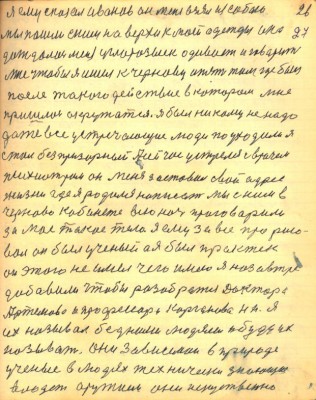 26
27
я ему сказал Иванов он меня взял и собою
мы пошли с ним на верх к моей одежды и по
дождал меня углеразвен одивает и говорит
мне чтобы я шел к чернову опять там где был
после такого действие в котором мне
пришли окружатся. я был никому не надо
даже все устречающие люди по уходил я
стал безпризорный я сейчас устрел с врачем
психиатром он меня заставил свой адрес
жизни где я родился написат мы с ним в
черново кабинете всю ноч проговарили
за мое такое тело я ему за все про рисо-
вал он был ученый а я был практек
он этого не имел чего имею я на завтре
добавили чтобы разобрател доктора
Артемово и профессора Корганова н.н. я
их называл бедними людями и буду их
называт. Они зависими в природе
ученые в людях технически знающие
владет оружием они искуственно